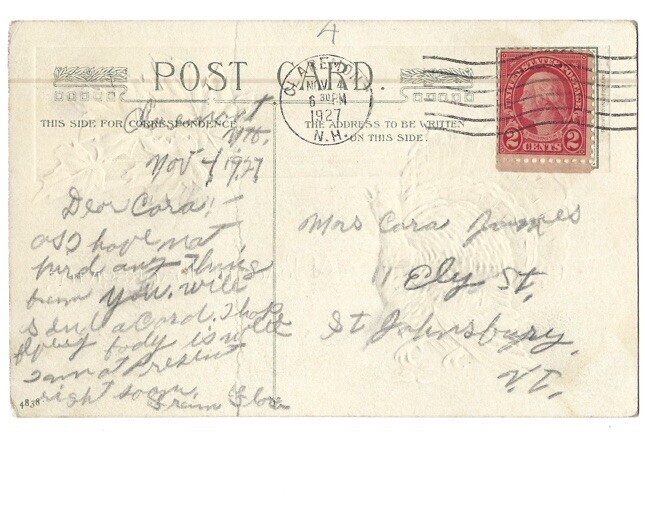 4
POST CARD.
CLAREMONT
NOV 4
6 30 PM
1927
N.H.
UNITED STATES POSTAGE
2 CENTS 2
THIS SIDE FOR CORRESPONDENCE
THE ADDRESS TO BE WRITTEN
ON THIS SIDE.
Nov 4 1927
Dear Cora;-
as I have not
hurd any thing
from you. will
send a Card. I hope
every body is well
I am at present
right soon.
From Flora
Mrs Cora James
11 Ely St.
St Johnsbury.
VT.
4838